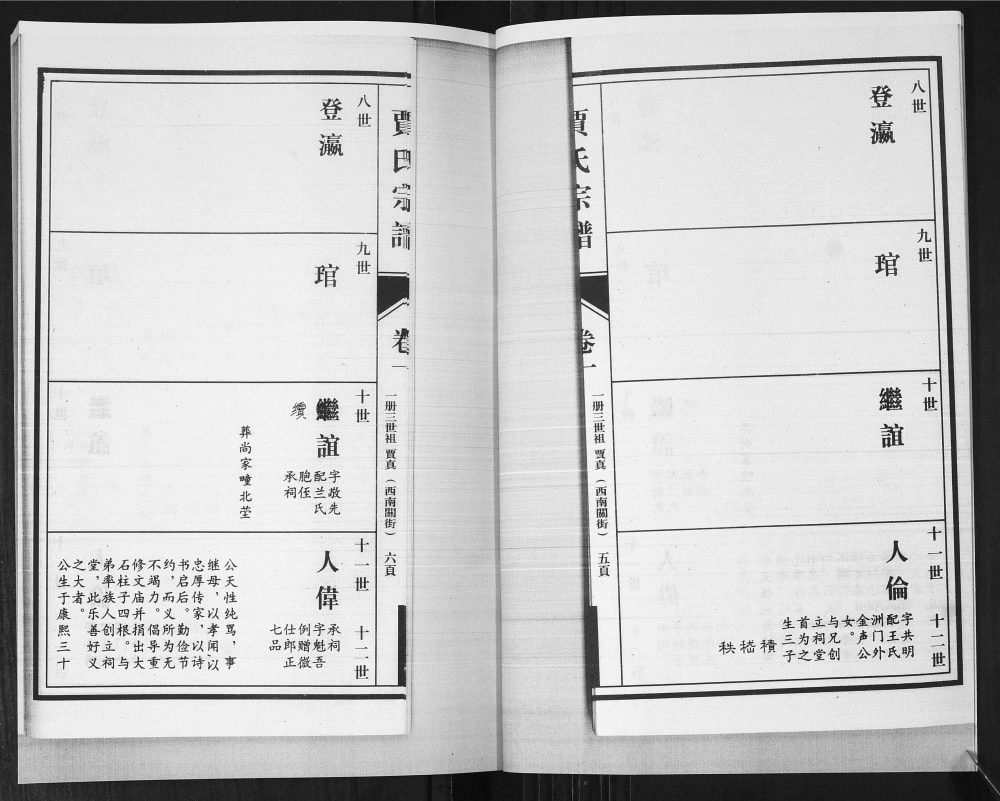 八世
登瀛
九世
琯
十世
繼誼
十一世
人倫
字共明
配王氏
洲门外
金声公
女。
与兄创
立祠堂
首为之
生三子
積
嵇
秩
十二世
賈氏宗譜
卷一
一册三世祖 贾真（西南關街） 五頁
賈氏宗譜
卷一
一册三世祖 贾真（西南關街） 六頁
八世
登瀛
九世
琯
十世
繼誼
字敬先
配兰氏
胞侄
承祠
葬尚家疃北茔
十一世
人偉
承祠
字魁吾
例赠徵
仕郎正
七品
十二世
公天性纯笃，事
继母，以孝闻以
忠厚传家，以诗
书启后。勤俭节
约，而义所为无
不竭力。倡导重
修文庙并捐出大
石柱子四根。与
弟率族人创立祠
堂，此乐善好义
之大者。
公生于康熙三十